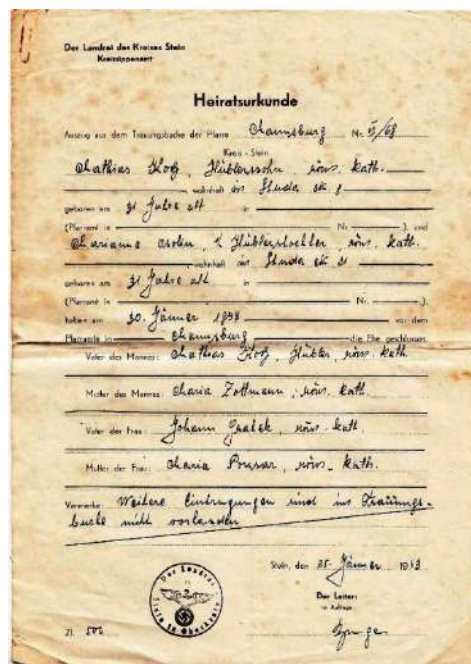 Der Landrat des Kreises Stein
Kreissippenamt
Heiratsurkunde
Auszug aus dem Trauungsbuche der Pfarre Mannsburg Nr. II/68
Kreis - Stein
Mathias Hüblerssohn, röm. kath.
wohnhaft in Studa №
geboren am 31 Jahre alt in
(Pfarramt in Nr. ) und
Marianna Hüblerstochter, röm. kath.
wohnhaft in Studa № 21
geboren am 31 Jahre alt in
(Pfarramt in Nr. ).
haben am 30. Jänner 1898 vor dem
Pfarramte in Mannsburg die Ehe geschlossen.
Vater des Mannes: Mathias Hübler, röm. kath.
Mutter des Mannes: Maria Zottmann, röm. kath.
Vater der Frau: Johann röm. kath.
Mutter der Frau: Maria röm. kath.
Vermerke: Weitere Eintragungen sind im Trauungs-
buche nicht vorhanden
Stein, den 25. Jänner 1943
Der Landrat
Stein in Oberkrain
Der Leiter:
im Auftrage
Zl. 500